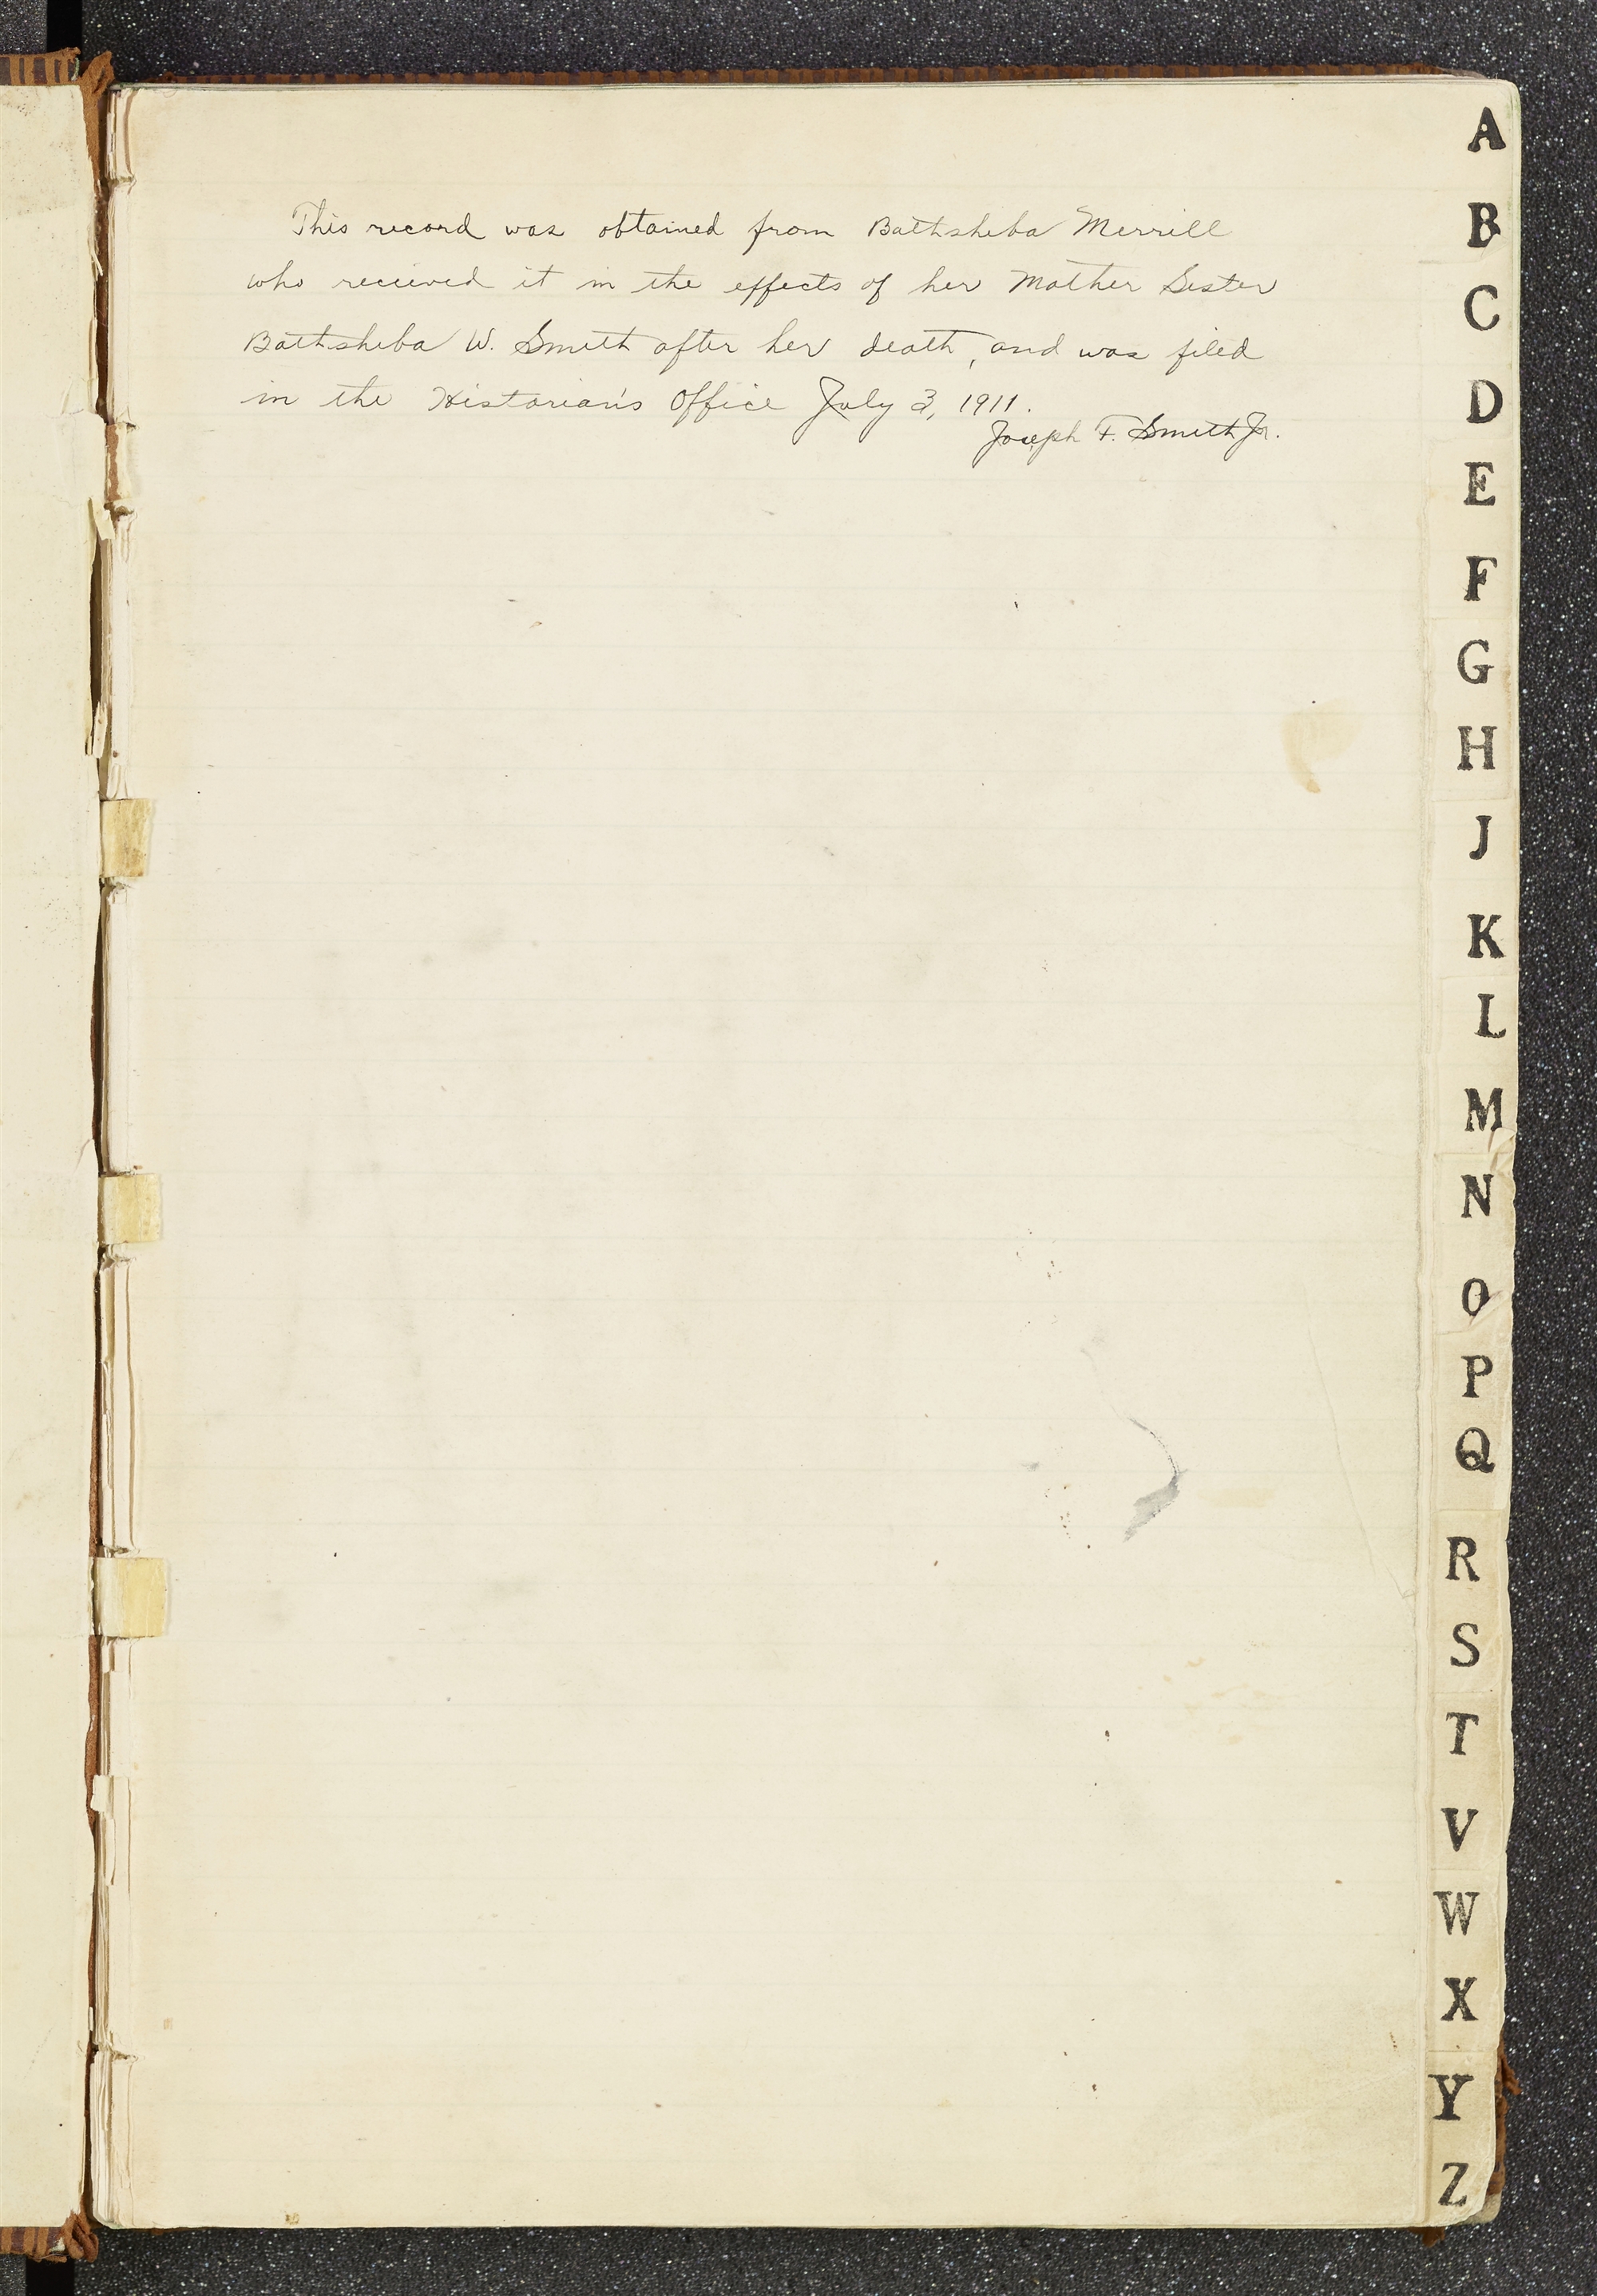 This record was obtained from Bathsheba Merrill
who recieved it in the effects of her Mother Sister
Bathsheba W. Smith after her death, and was filed
in the Historian's Office July 3, 1911.
Joseph F. Smith Jr.
A
B
C
D
E
F
G
H
J
K
L
M
N
O
P
Q
R
S
T
V
W
X
Y
Z